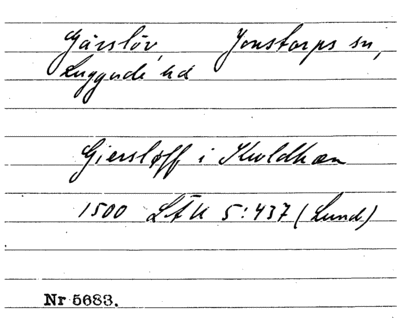 Gärslöv, Jonstorps sn,
Luggude hd
Giersløff i Skoldhæn
1500 LÄU 5:437 (Lund)
Nr 5683.